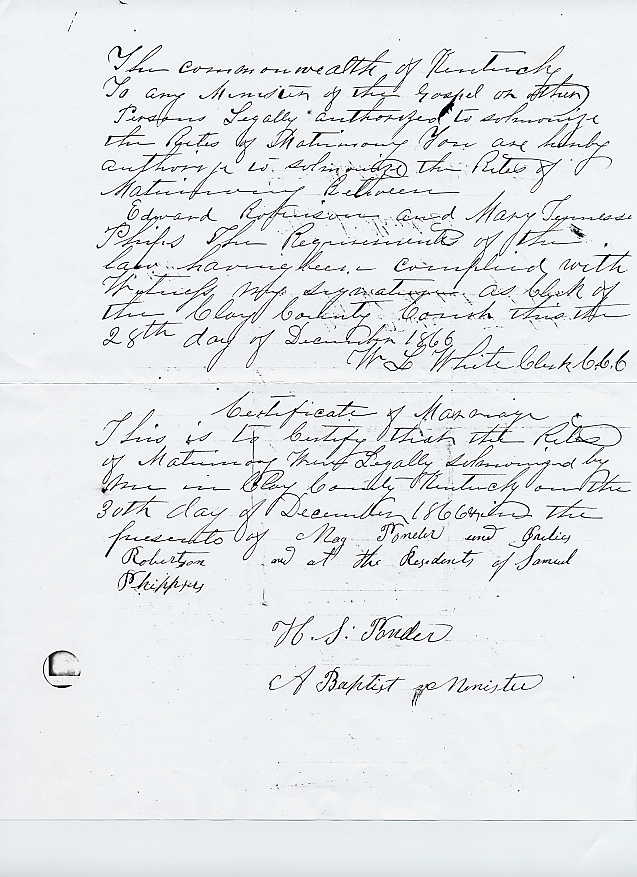 The commonwealth of Kentucky
To any Minister of the Gospel or other
Persons Legally authorized to solmnize
the Rites of Matrimony You are hereby
authorize to solmnize the Rites of
Matrimony Between
Edward Robinson and Mary Tennessee
Phips The Requirements of the
law having been complied with
Witness my signature as Clerk of
the Clay County Court this the
28th day of December 1866
W L White Clerk C.C.C
Certificate of Marriage
This is to Certify that the Rites
of Matrimony were Legally solmnized by
me in Clay County Kentucky on the
30th day of December 1866 in the
presents of Ponder and
Robertson and at the Residents of Samul
Phippses
H. S. Ponder
A Baptist Minister